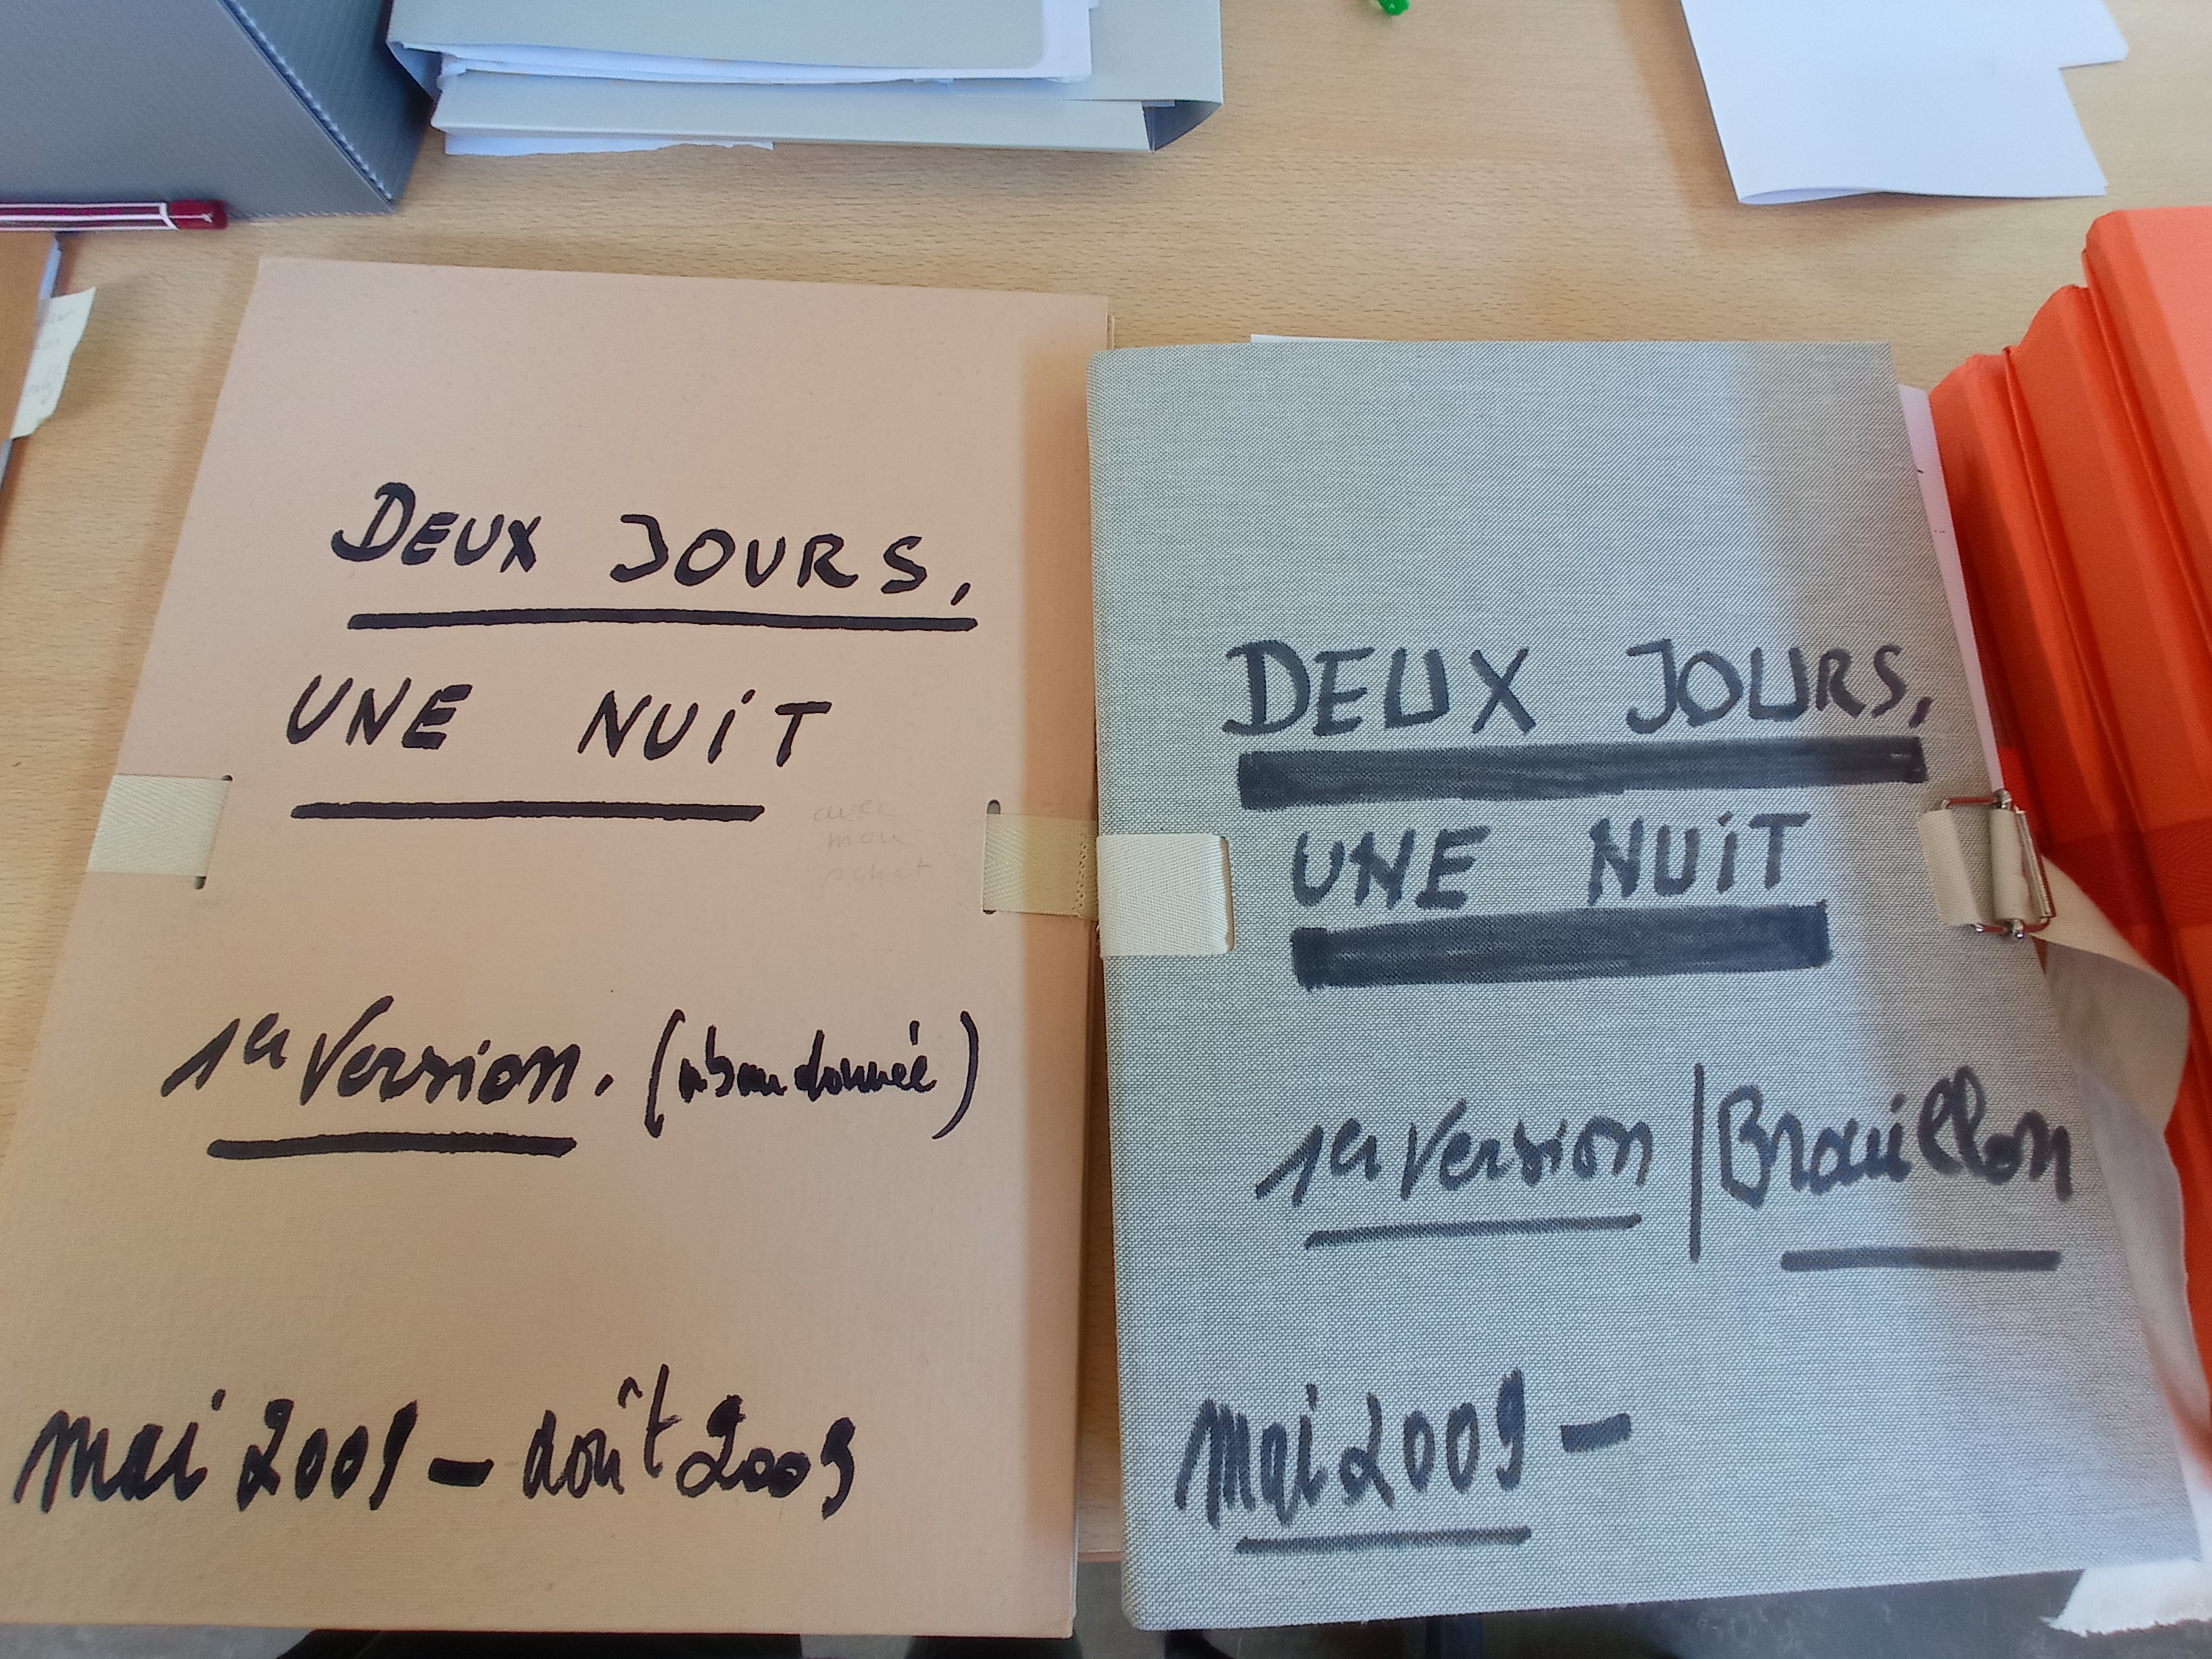 DEUX JOURS,
UNE NUIT
avec
mon
1er Version. (abandonnée)
mai 2009 – août 2009
DEUX JOURS,
UNE NUIT
1er Version | Brouillon
mai 2009 –